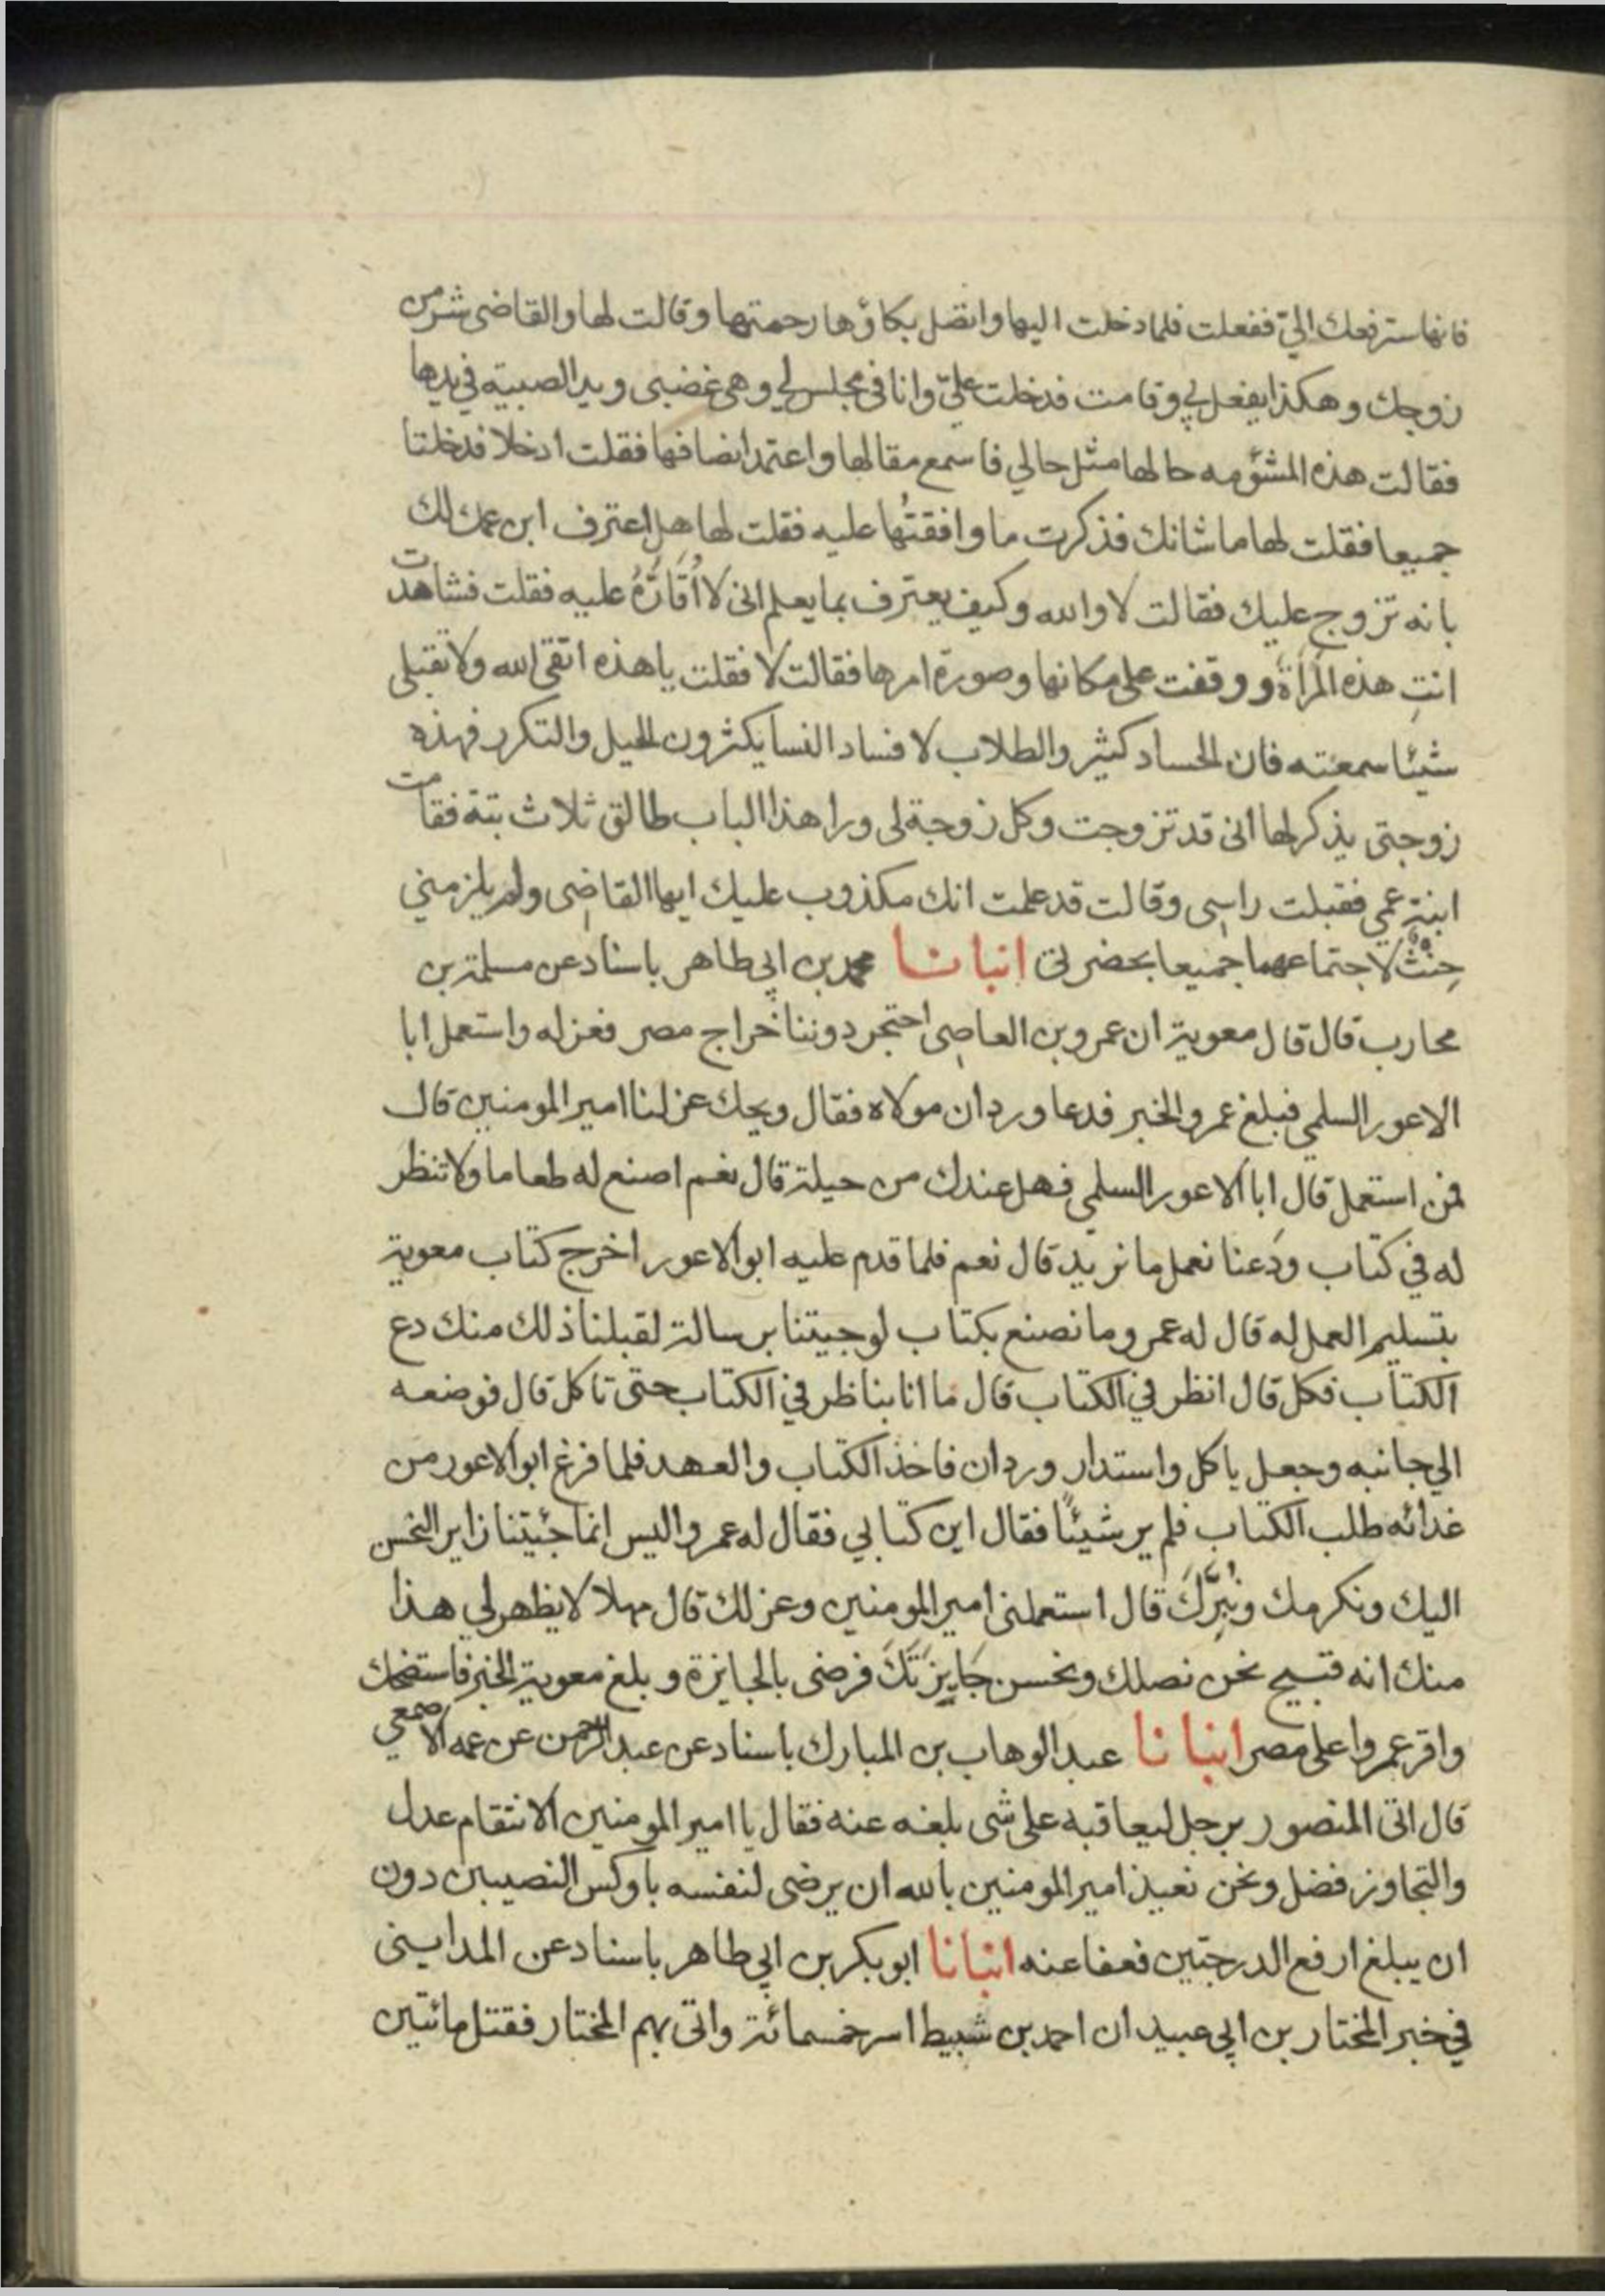 فانها سترفعك اليّ ففعلت فلما دخلت اليها واتصل بكاؤها رحمتها وقالت لها والقاضى شر من
زوجك وهكذا يفعل بي وقامت فدخلت عليّ وانا في مجلس لي وهي غضبى ويد الصبية في يدها
فقالت هذه المشئومه حالها مثل حالي فاسمع مقالها واعتمد انصافها فقلت ادخلا فدخلتا
جميعا فقلت لها ما شانك فذكرت ما وافقتُها عليه فقلت لها هل اعترف ابن عمك لك
بانه تزوج عليك فقالت لا والله وكيف يعترف بما يعلم انى لا اُقَارُّهُ عليه فقلت فشاهدت
انتِ هذه المرأة ووقفت على مكانها وصورة امرها فقالت لا فقلت يا هذه اتقى الله ولا تقبلى
شيئا سمعته فان الحساد كثير والطلاب لافساد النسا يكثرون الحيل والتكرر فهذه
زوجتى يذكر لها انى قد تزوجت وكل زوجة لى ورا هذا الباب طالق ثلاث بتة فقامت
ابنة عمي فقبلت راسى وقالت قد علمت انك مكذوب عليك ايها القاضى ولم يلزمني
حِنْثٌ لاجتماعهما جميعا بحضرتى انبانا محمد بن ابي طاهر باسناد عن مسلمة بن
محارب قال قال معوية ان عمرو بن العاصى احتجر دوننا خراج مصر فعزله واستعمل ابا
الاعور السلمي فبلغ عمرو الخبر فدعا وردان مولاه فقال ويحك عزلنا امير المومنين قال
فمن استعمل قال ابا الاعور السلمي فهل عندك من حيلة قال نعم اصنع له طعاما ولا تنظر
له في كتاب ودَعنا نعمل ما نريد قال نعم فلما قدم عليه ابو الاعور اخرج كتاب معوية
بتسليم العمل له قال له عمرو ما نصنع بكتاب لو جيتنا برسالة لقبلنا ذلك منك دع
الكتاب فكل قال انظر في الكتاب قال ما انا بناظر في الكتاب حتى تاكل قال فوضعه
الي جانبه وجعل ياكل واستدار وردان فاخذ الكتاب والعهد فلما فرغ ابو الاعور من
غدائه طلب الكتاب فلم ير شيئًا فقال اين كتابي فقال له عمرو اليس انما جئيتنا زاير النحسن
اليك ونكرمك ونُبِرَّكَ قال استعملنى امير المومنين وعزلك قال مهلا لا يظهر لي هذا
منك انه قبيح نحن نصلك ونحسن جَايِزَتَكَ فرضى بالجايزة وبلغ معوية الخبر فاستضحك
واقر عمروا على مصر انبانا عبد الوهاب بن المبارك باسناد عن عبد الرحمن عن عمه الاصمعي
قال اتى المنصور برجل ليعاقبه على شى بلغه عنه فقال يا امير المومنين الانتقام عدل
والتجاوز فضل ونحن نعيذ امير المومنين بالله ان يرضى لنفسه باوكس النصيبين دون
ان يبلغ ارفع الدرجتين فعفا عنه انبانا ابو بكر بن ابي طاهر باسناد عن المداينى
في خبر المختار بن ابي عبيد ان احمد بن شبيط اسر خمسمائة واتى بهم المختار فقتل مائتين